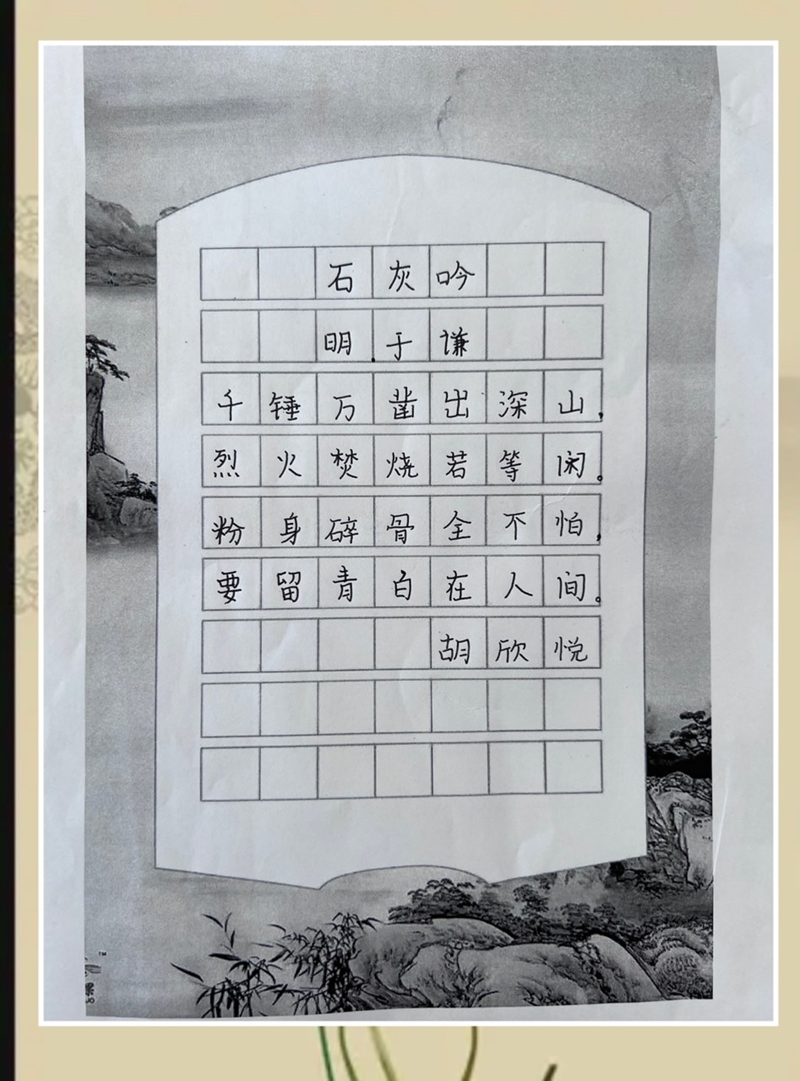 石灰吟
明·于谦
千锤万凿出深山，
烈火焚烧若等闲。
粉身碎骨全不怕，
要留青白在人间。
胡欣悦